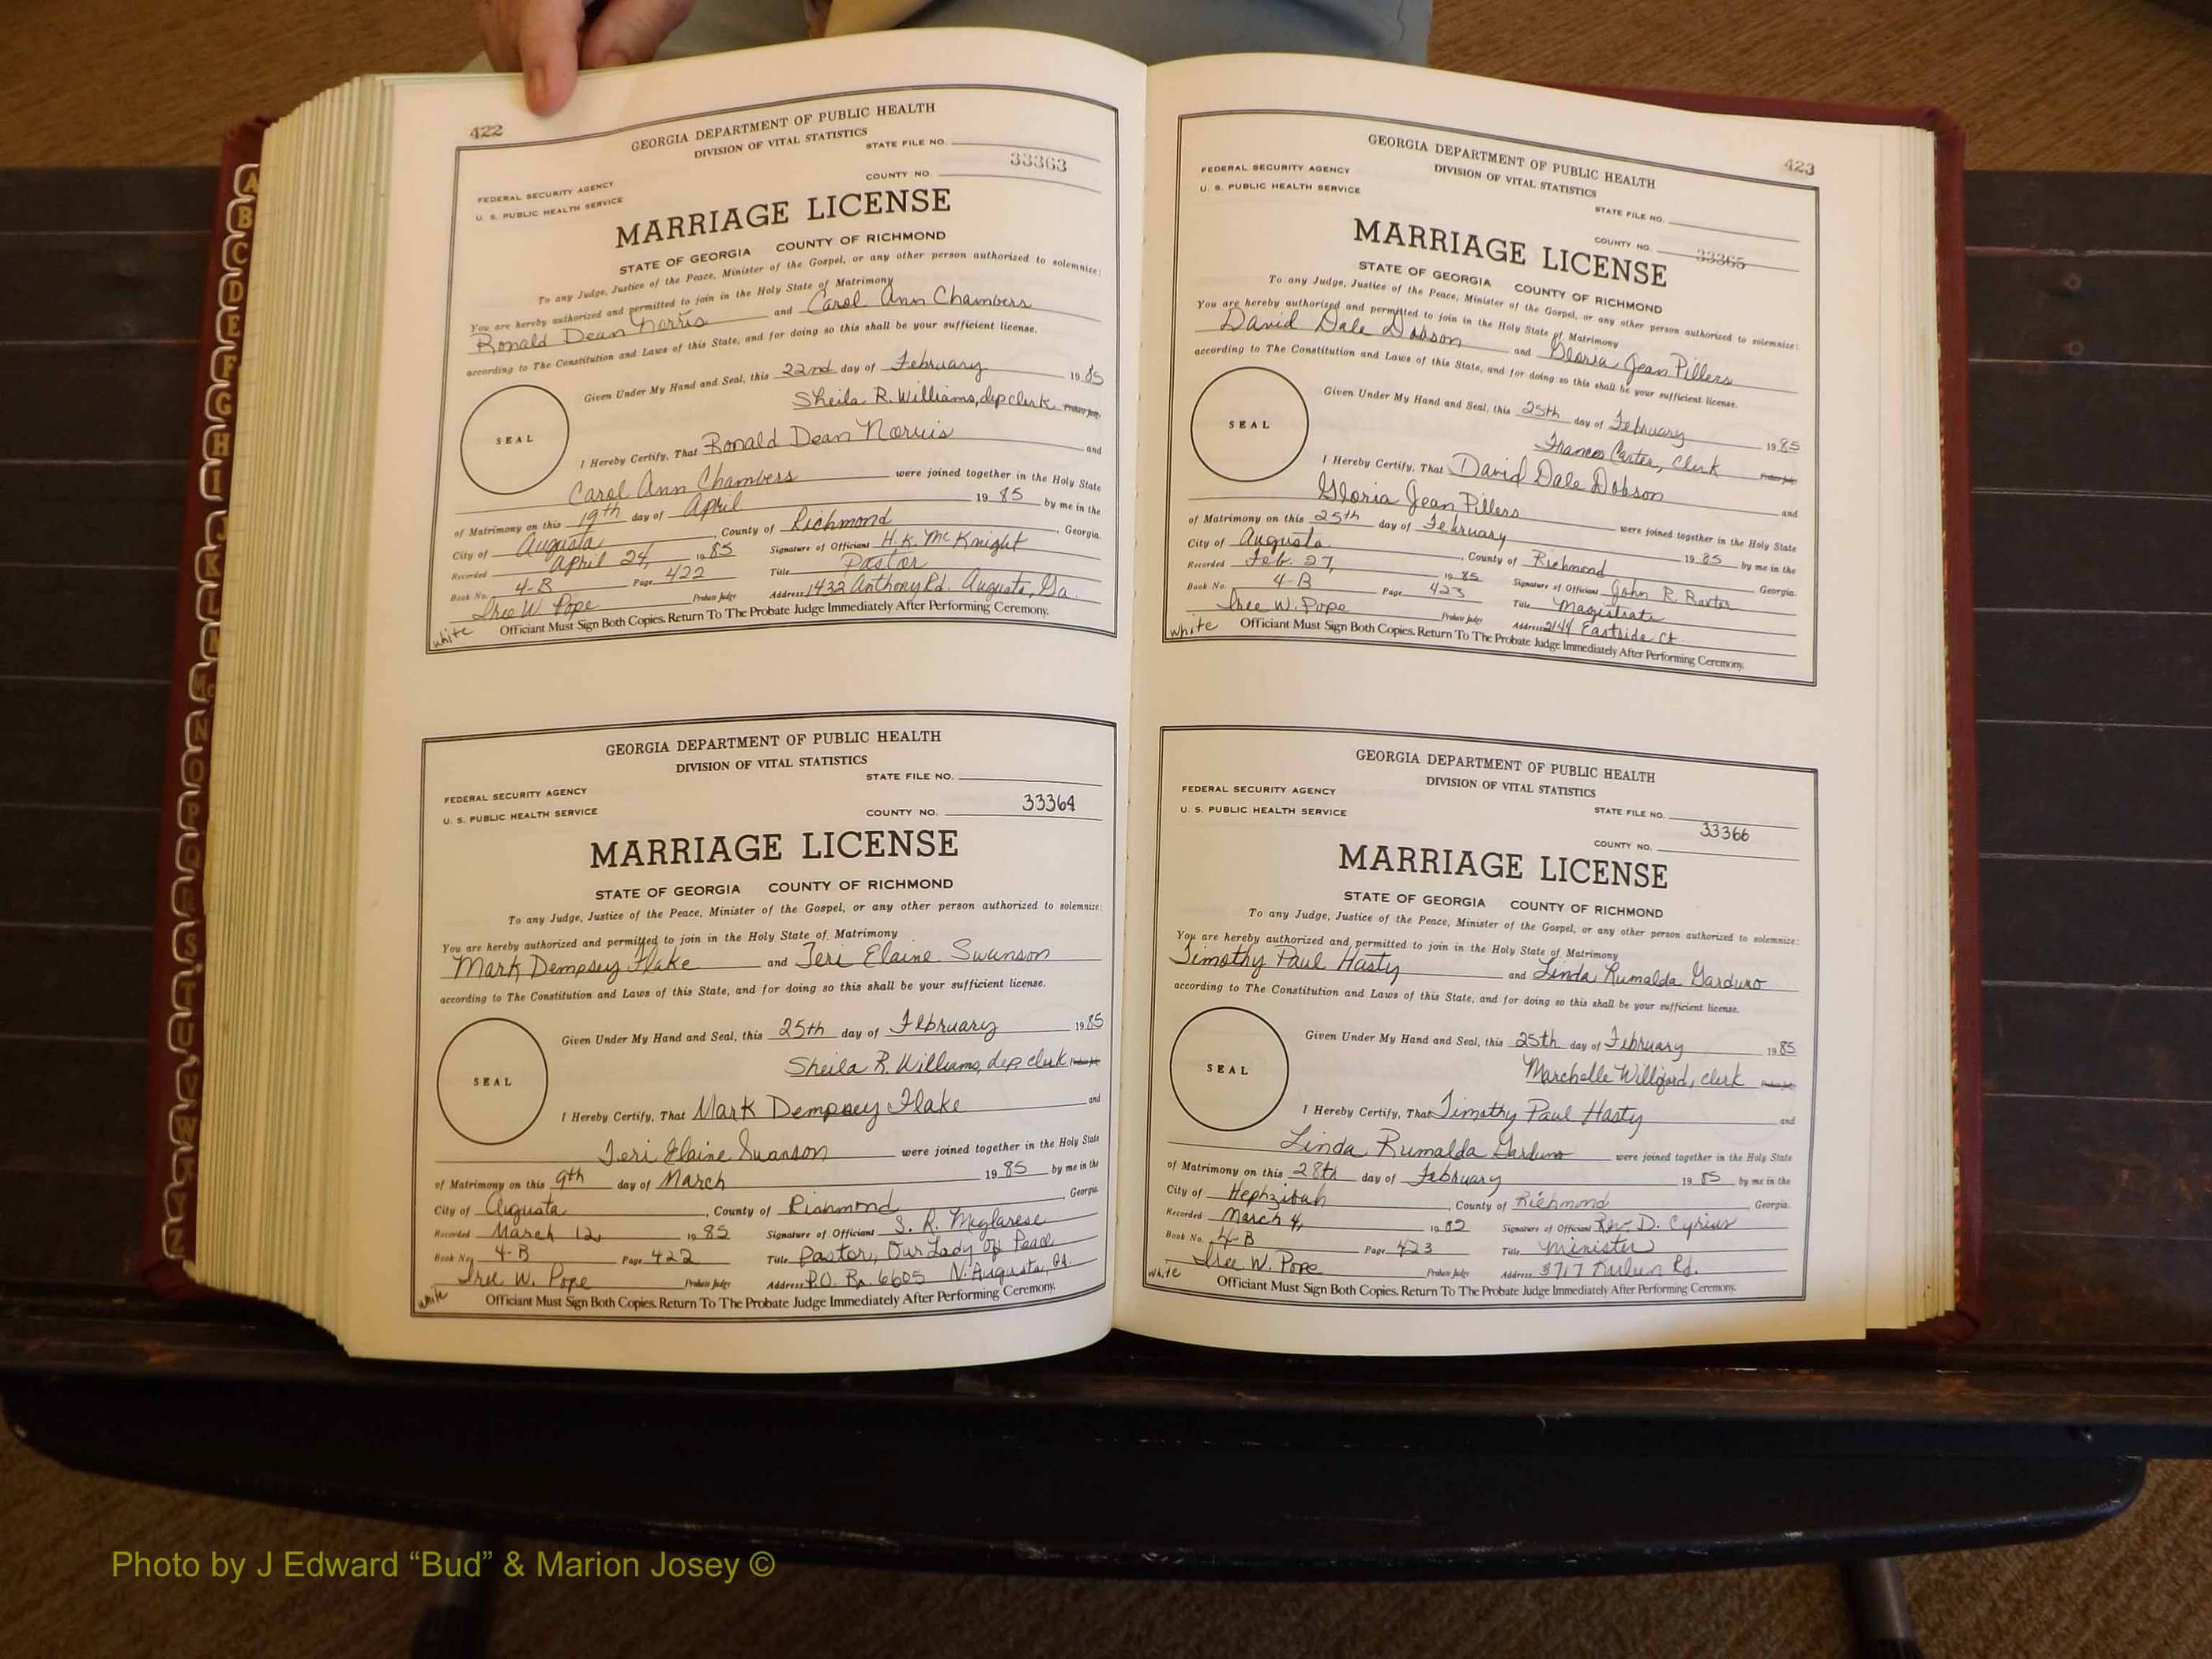 422
GEORGIA DEPARTMENT OF PUBLIC HEALTH
DIVISION OF VITAL STATISTICS
STATE FILE NO.
33363
FEDERAL SECURITY AGENCY
COUNTY NO.
U. S. PUBLIC HEALTH SERVICE
MARRIAGE LICENSE
STATE OF GEORGIA COUNTY OF RICHMOND
To any Judge, Justice of the Peace, Minister of the Gospel, or any other person authorized to solemnize:
You are hereby authorized and permitted to join in the Holy State of Matrimony
Ronald Dean Norris and Carol Ann Chambers
according to The Constitution and Laws of this State, and for doing so this shall be your sufficient license.
Given Under My Hand and Seal, this 22nd day of February 1985
Sheila R. Williams, dep clerk Probate Judge
SEAL
I Hereby Certify, That Ronald Dean Norris and
Carol Ann Chambers were joined together in the Holy State
of Matrimony on this 19th day of April 1985 by me in the
City of Augusta, County of Richmond, Georgia.
Recorded April 24, 1985 Signature of Officiant H. K. McKnight
Book No. 4-B Page 422 Title Pastor
Iree W. Pope Probate Judge Address 1432 Anthony Rd. Augusta, Ga.
white Officiant Must Sign Both Copies. Return To The Probate Judge Immediately After Performing Ceremony.
GEORGIA DEPARTMENT OF PUBLIC HEALTH
DIVISION OF VITAL STATISTICS
STATE FILE NO.
FEDERAL SECURITY AGENCY
33364
U. S. PUBLIC HEALTH SERVICE COUNTY NO.
MARRIAGE LICENSE
STATE OF GEORGIA COUNTY OF RICHMOND
To any Judge, Justice of the Peace, Minister of the Gospel, or any other person authorized to solemnize:
You are hereby authorized and permitted to join in the Holy State of Matrimony
Mark Dempsey Flake and Teri Elaine Swanson
according to The Constitution and Laws of this State, and for doing so this shall be your sufficient license.
Given Under My Hand and Seal, this 25th day of February 1985
Sheila R. Williams, dep clerk Probate Judge
SEAL
I Hereby Certify, That Mark Dempsey Flake and
Teri Elaine Swanson were joined together in the Holy State
of Matrimony on this 9th day of March 1985 by me in the
City of Augusta, County of Richmond, Georgia.
Recorded March 12, 1985 Signature of Officiant S. R.
Book No. 4-B Page 422 Title Pastor, Our Lady of Peace
Iree W. Pope Probate Judge Address P.O. Bx. 6605 N. Augusta, Ga.
white Officiant Must Sign Both Copies. Return To The Probate Judge Immediately After Performing Ceremony.
423
GEORGIA DEPARTMENT OF PUBLIC HEALTH
DIVISION OF VITAL STATISTICS
FEDERAL SECURITY AGENCY
U. S. PUBLIC HEALTH SERVICE
STATE FILE NO.
COUNTY NO. 33365
MARRIAGE LICENSE
STATE OF GEORGIA COUNTY OF RICHMOND
To any Judge, Justice of the Peace, Minister of the Gospel, or any other person authorized to solemnize:
You are hereby authorized and permitted to join in the Holy State of Matrimony
David Dale Dobson and Gloria Jean Pillers
according to The Constitution and Laws of this State, and for doing so this shall be your sufficient license.
Given Under My Hand and Seal, this 25th day of February 1985
Frances Carter, Clerk Probate Judge
SEAL
I Hereby Certify, That David Dale Dobson and
Gloria Jean Pillers were joined together in the Holy State
of Matrimony on this 25th day of February 1985 by me in the
City of Augusta, County of Richmond Georgia.
Recorded Feb. 27, 1985 Signature of Officiant John R. Baxter
Book No. 4-B Page 423 Title Magistrate
Iree W. Pope Probate Judge Address 2144 Eastside Ct.
white Officiant Must Sign Both Copies. Return To The Probate Judge Immediately After Performing Ceremony.
GEORGIA DEPARTMENT OF PUBLIC HEALTH
DIVISION OF VITAL STATISTICS
FEDERAL SECURITY AGENCY
U. S. PUBLIC HEALTH SERVICE STATE FILE NO.
33366
COUNTY NO.
MARRIAGE LICENSE
STATE OF GEORGIA COUNTY OF RICHMOND
To any Judge, Justice of the Peace, Minister of the Gospel, or any other person authorized to solemnize:
You are hereby authorized and permitted to join in the Holy State of Matrimony
Timothy Paul Hasty and Linda Rumalda Garduno
according to The Constitution and Laws of this State, and for doing so this shall be your sufficient license.
Given Under My Hand and Seal, this 25th day of February 1985
Marchelle Williford, clerk Probate Judge
SEAL
I Hereby Certify, That Timothy Paul Hasty and
Linda Rumalda Garduno were joined together in the Holy State
of Matrimony on this 28th day of February 1985 by me in the
City of Hephzibah, County of Richmond, Georgia.
Recorded March 4, 1985 Signature of Officiant Rev. D. Cyrius
Book No. 4-B Page 423 Title Minister
Iree W. Pope Probate Judge Address 3717 Rd.
white Officiant Must Sign Both Copies. Return To The Probate Judge Immediately After Performing Ceremony.
A
B
C
D
E
F
G
H
I
J
K
L
M
Mc
N
O
P
Q
R
S
T
U
V
W
Y
Z
Photo by J Edward “Bud” & Marion Josey ©